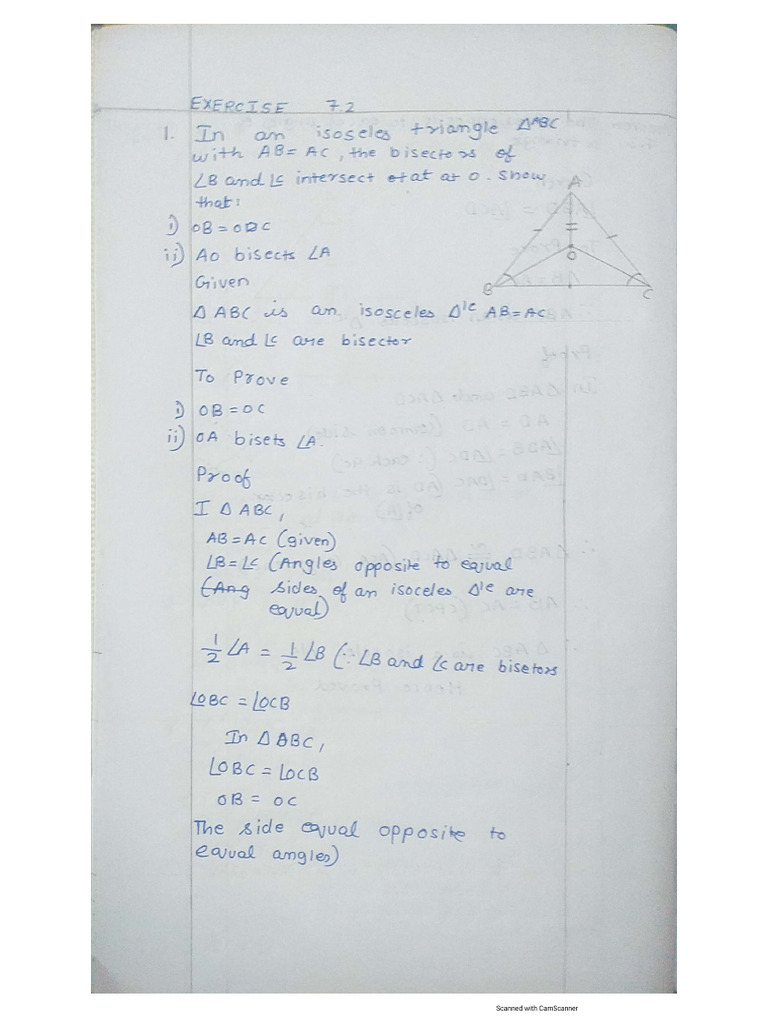 EXERCISE 7.2
1. In an isoseles triangle △ABC
with AB = AC, the bisectors of
∠B and ∠C intersect at at O. Show
that:
i) OB = OC
ii) AO bisects ∠A
A
O
B
C
Given
△ ABC is an isosceles △le AB = AC
∠B and ∠C are bisector
To Prove
i) OB = OC
ii) OA bisets ∠A.
Proof
I △ ABC,
AB = AC (given)
∠B = ∠C (Angles opposite to equal
(Ang sides of an isoceles △le are
equal)
1/2 ∠A = 1/2 ∠B (∵ ∠B and ∠C are bisetors
∠OBC = ∠OCB
In △ OBC,
∠OBC = ∠OCB
OB = OC
The side equal opposite to
equal angles)
Scanned with CamScanner